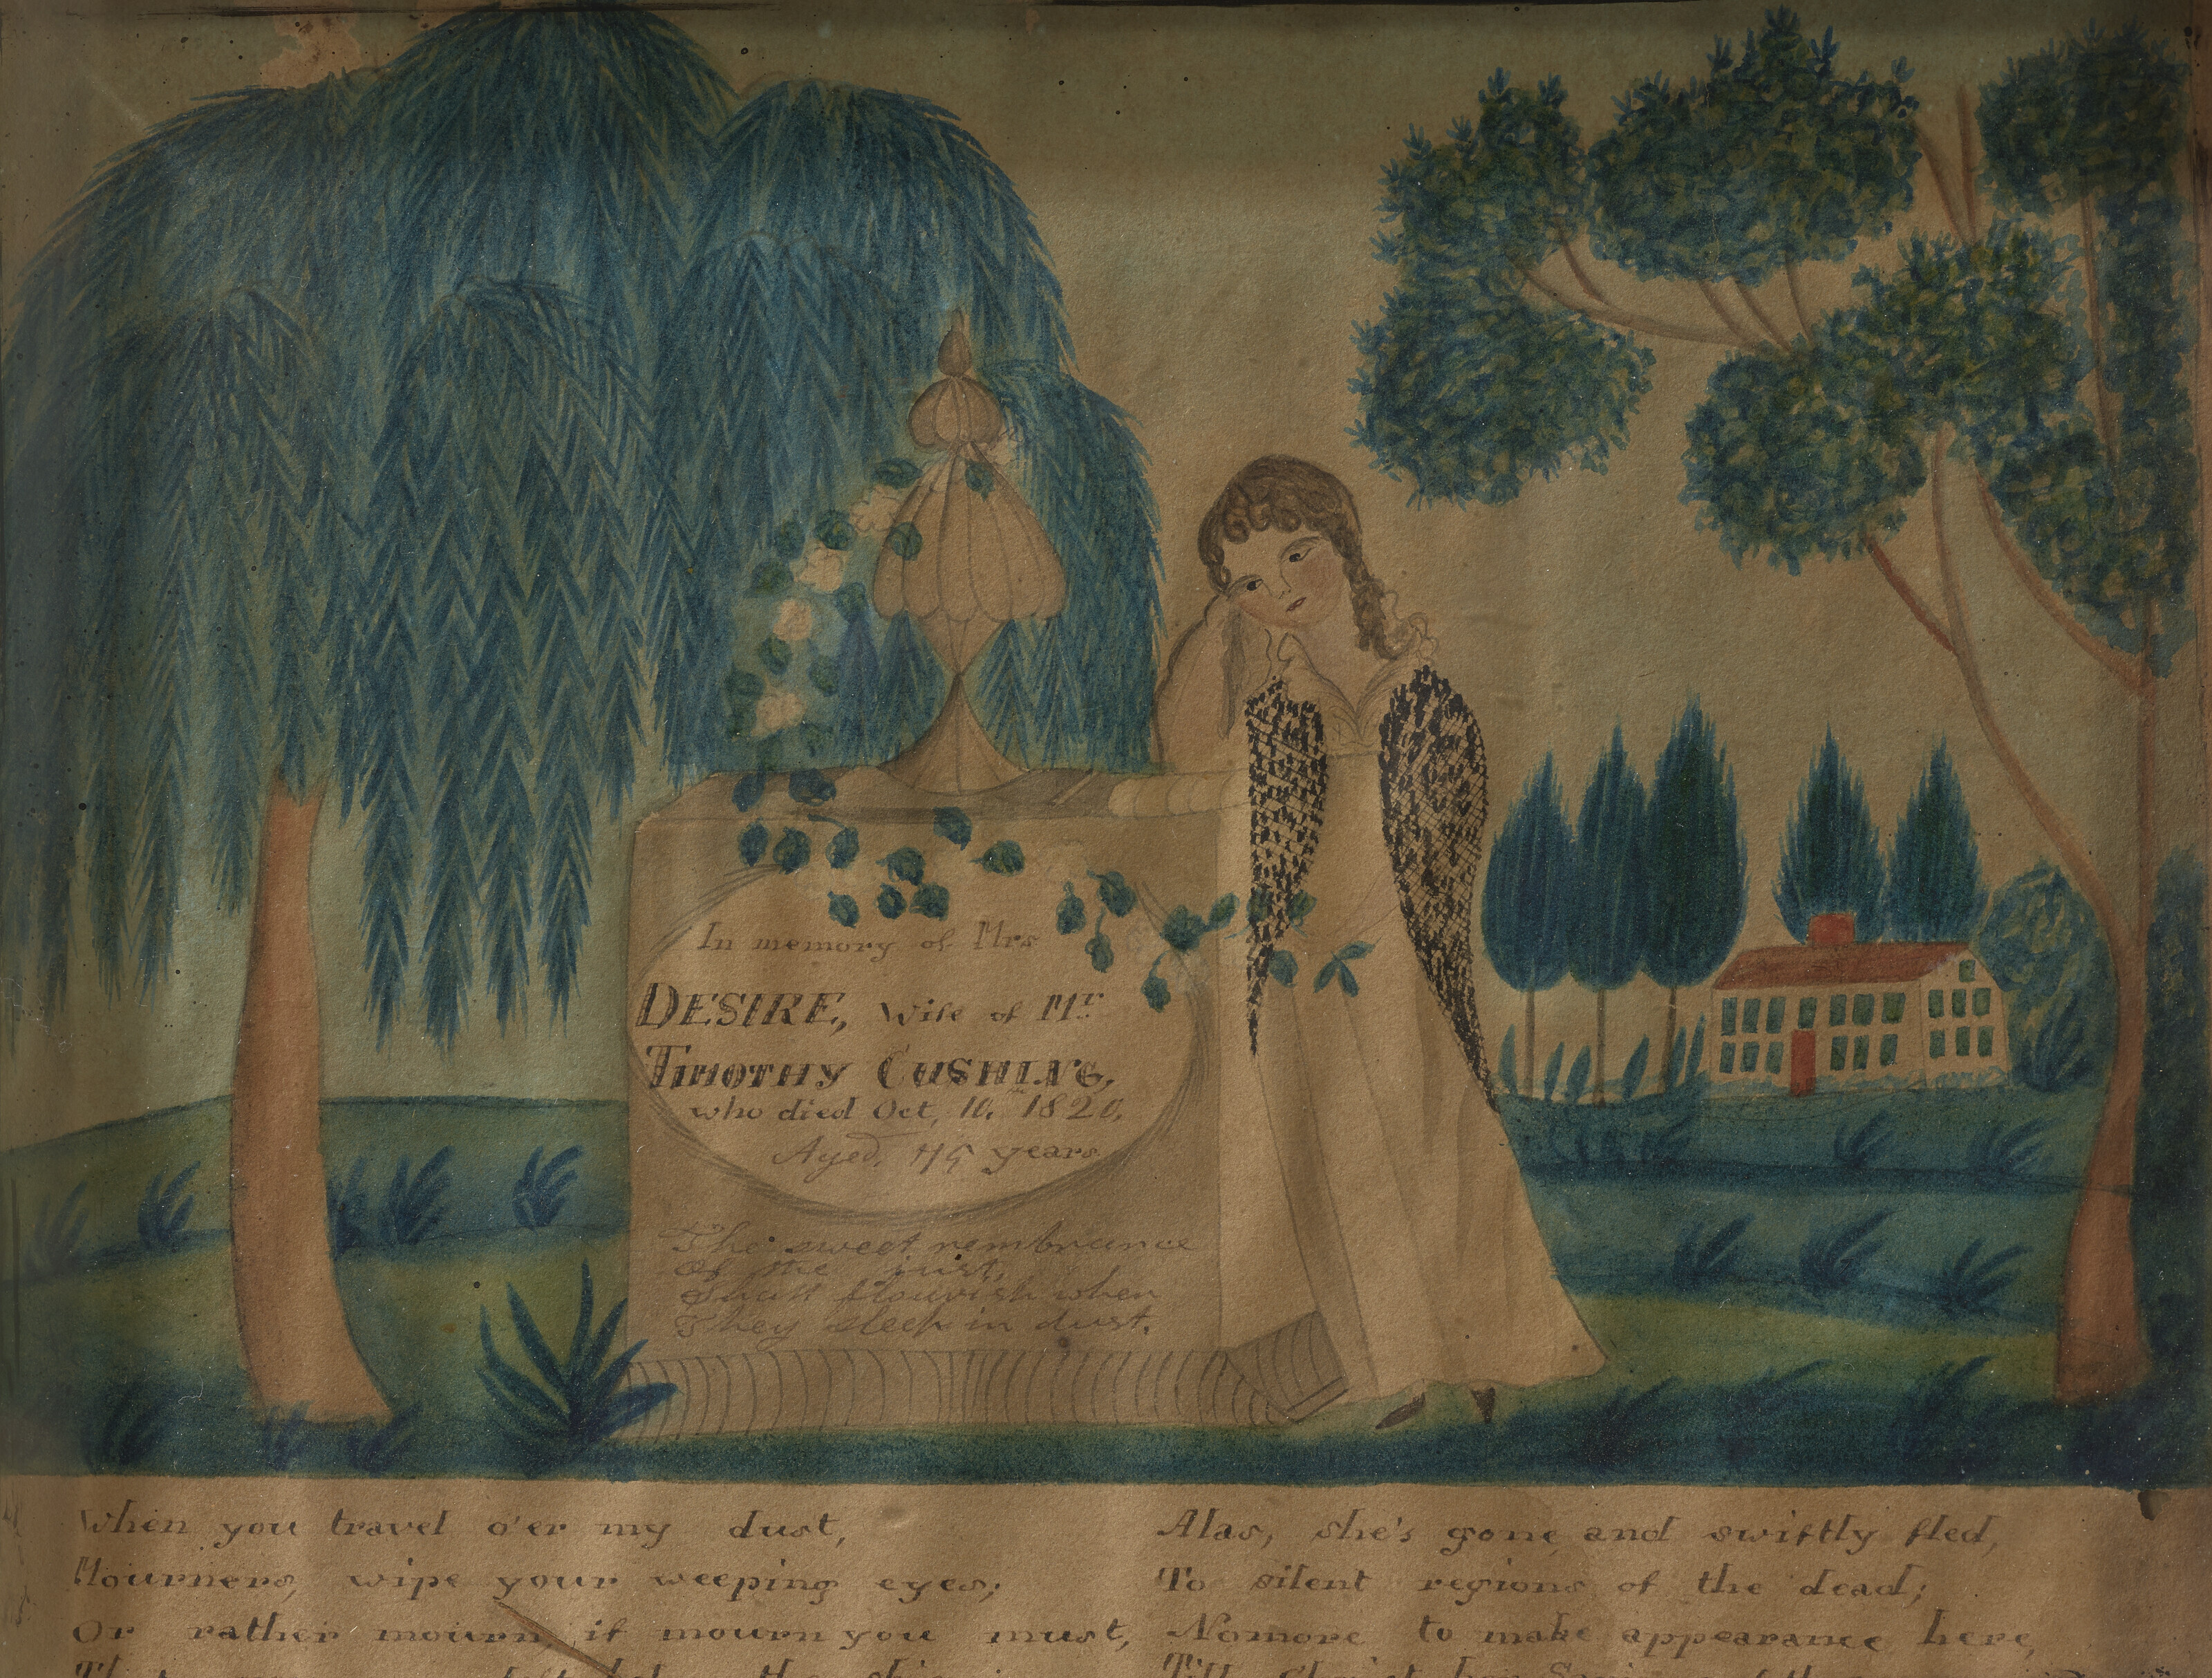 In memory of Mrs
DESIRE, Wife of Mr
TIMOTHY CUSHING,
who died Oct, 10, 1820,
Aged, years
The sweet rembrance
Of the just,
Shall flourish when
They sleep in dust.
When you travel o'er my dust,
Mourners, wipe your weeping eyes;
Or rather mourn, if mourn you must,
Alas, she's gone and swiftly fled,
To silent regions of the dead;
Nomore to make appearance here,